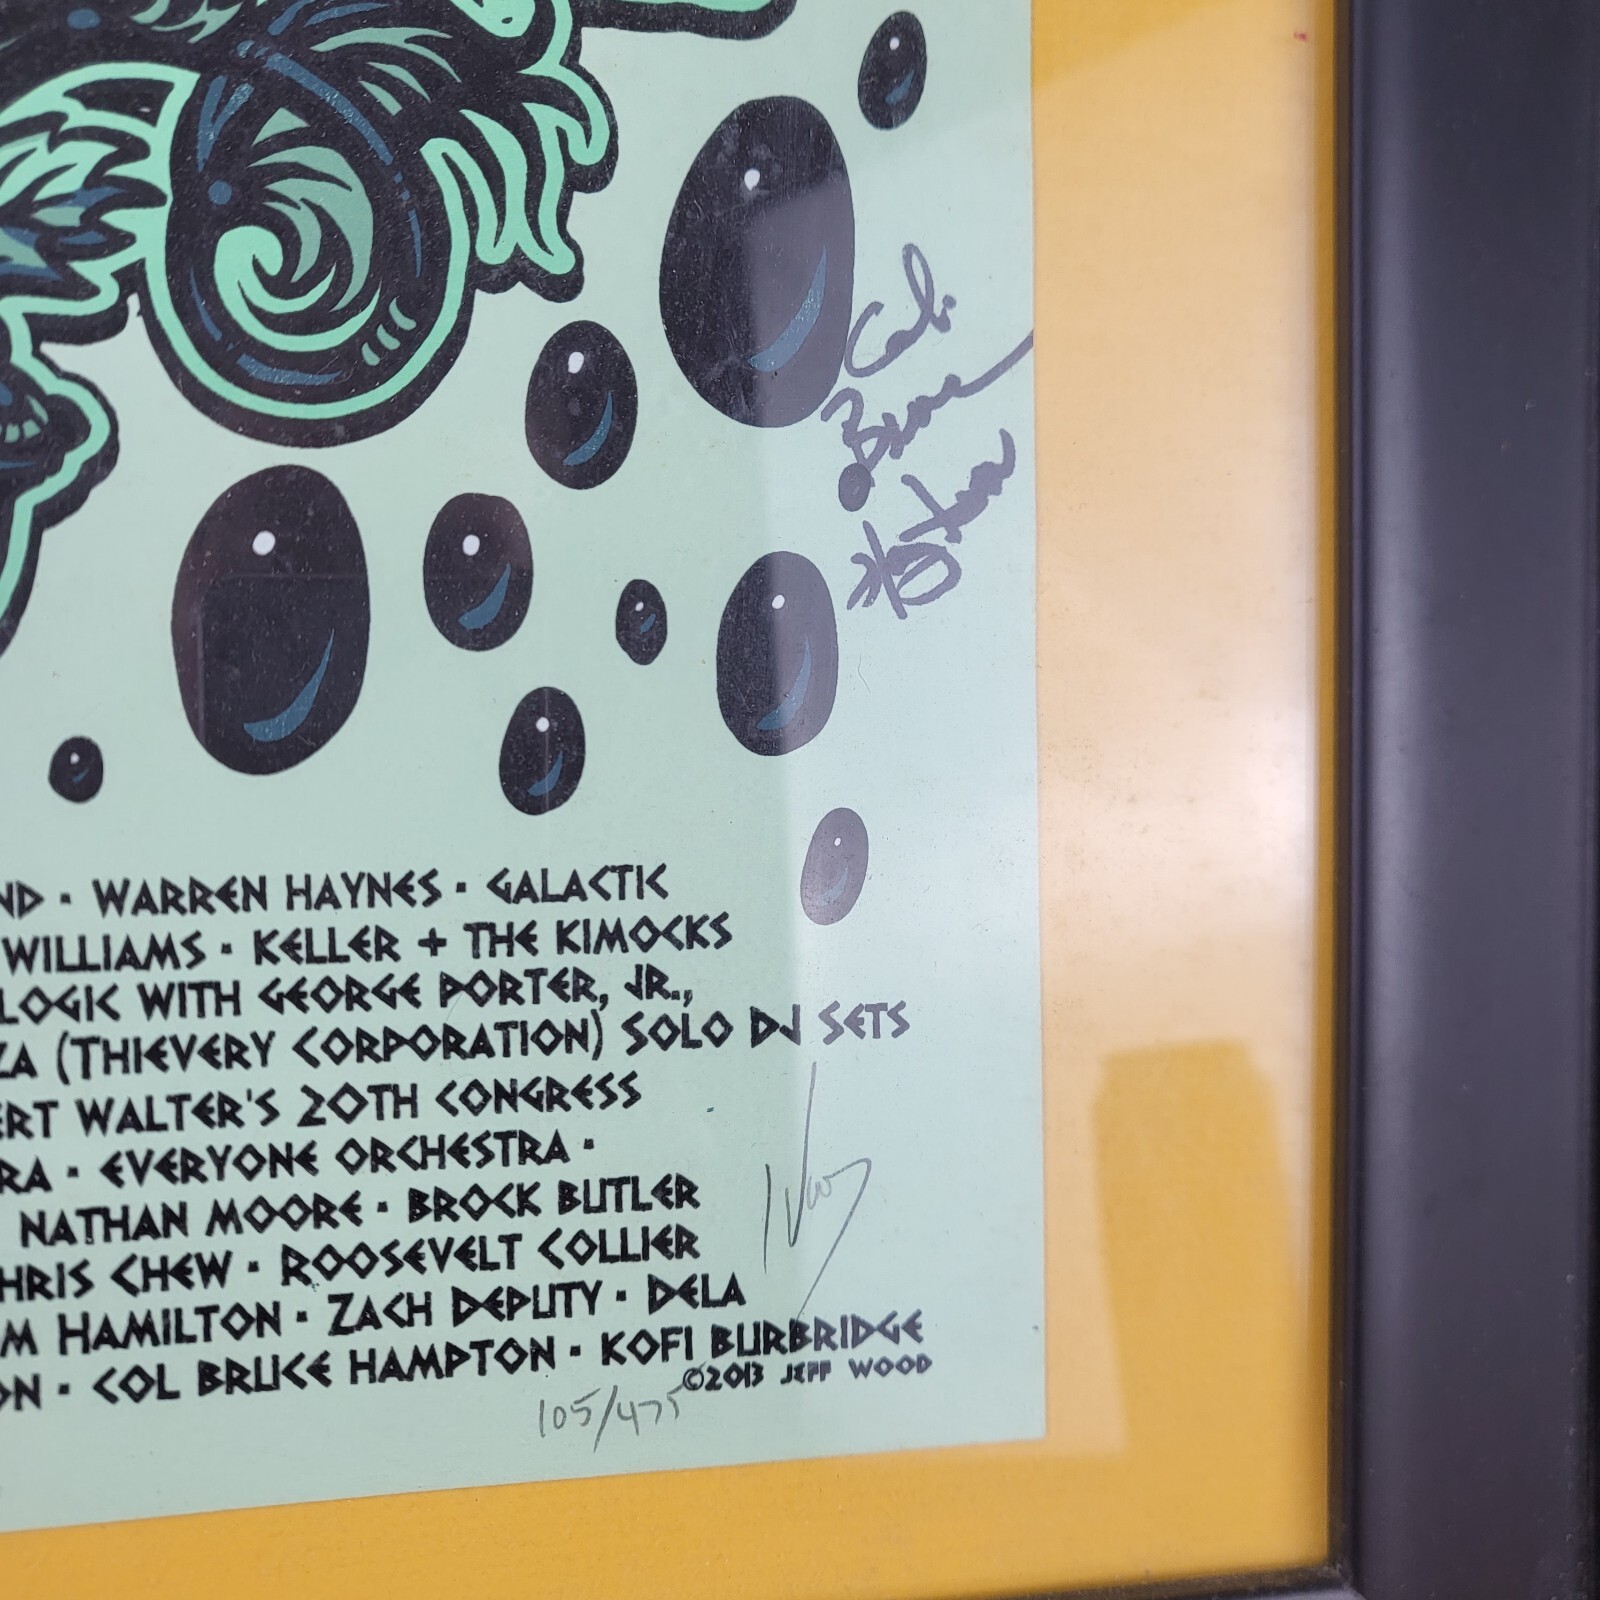 Col.
Bruce
Hampton
ND · WARREN HAYNES · GALACTIC
WILLIAMS · KELLER + THE KIMOCKS
LOGIC WITH GEORGE PORTER, JR.,
ZA (THIEVERY CORPORATION) SOLO DJ SETS
ERT WALTER'S 20TH CONGRESS
RA · EVERYONE ORCHESTRA ·
NATHAN MOORE · BROCK BUTLER
HRIS CHEW · ROOSEVELT COLLIER
M HAMILTON · ZACH DEPUTY · DELA
ON · COL BRUCE HAMPTON · KOFI BURBRIDGE
©2013 JEFF WOOD
105/475